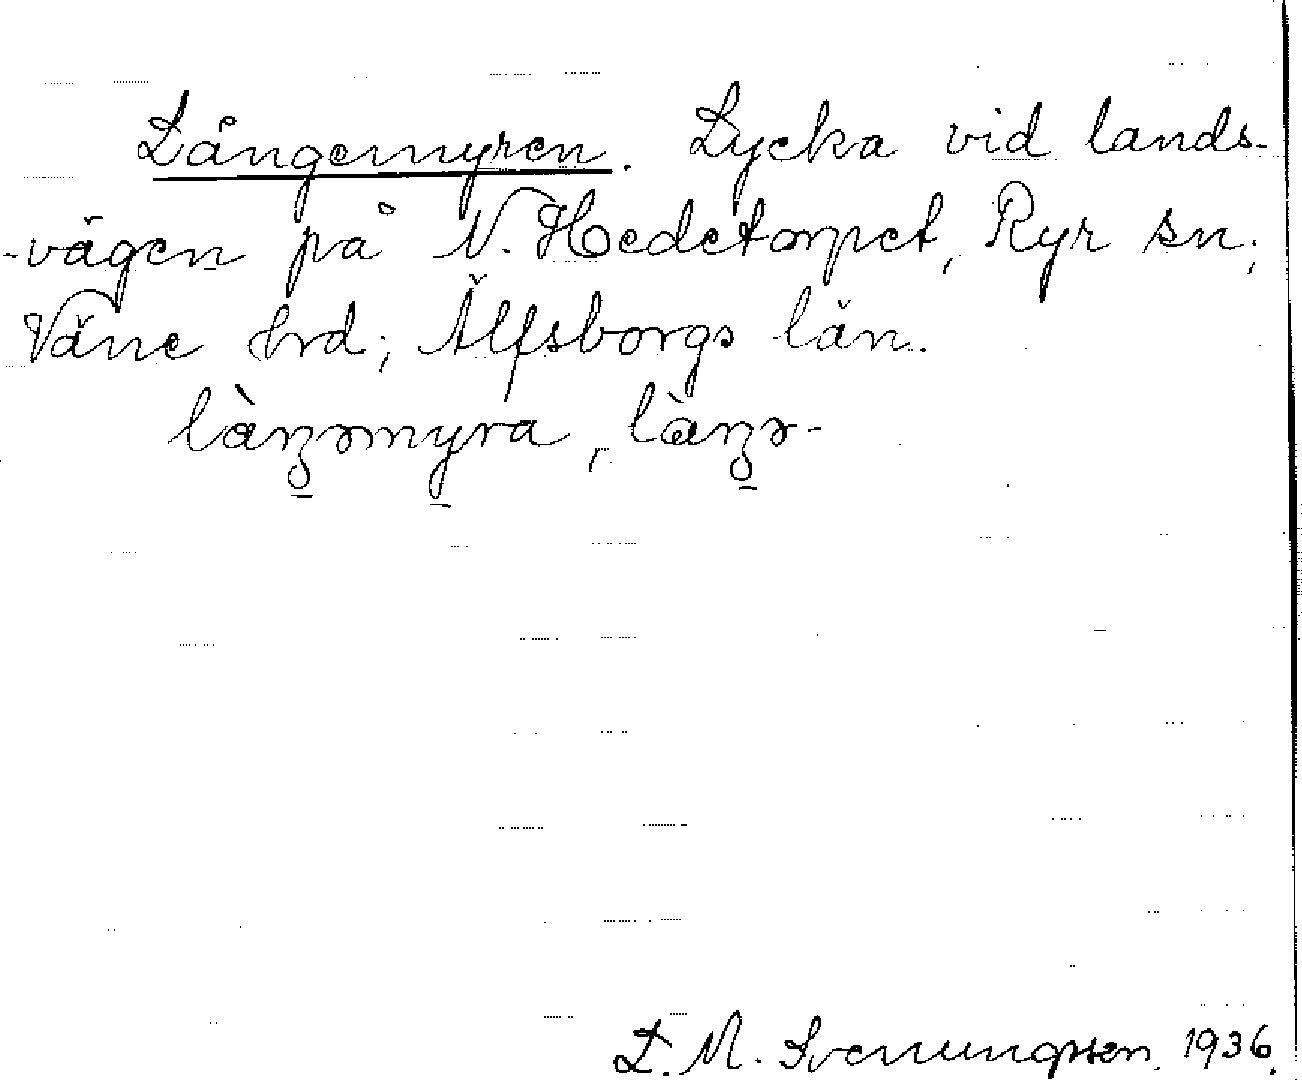 Långemyren. Lycka vid lands-
-vägen på N. Hedetorpet, Ryr sn;
Väne hrd; Älfsborgs län.
làŋəmyra, làŋə-
L. M. Svenungsson. 1936.